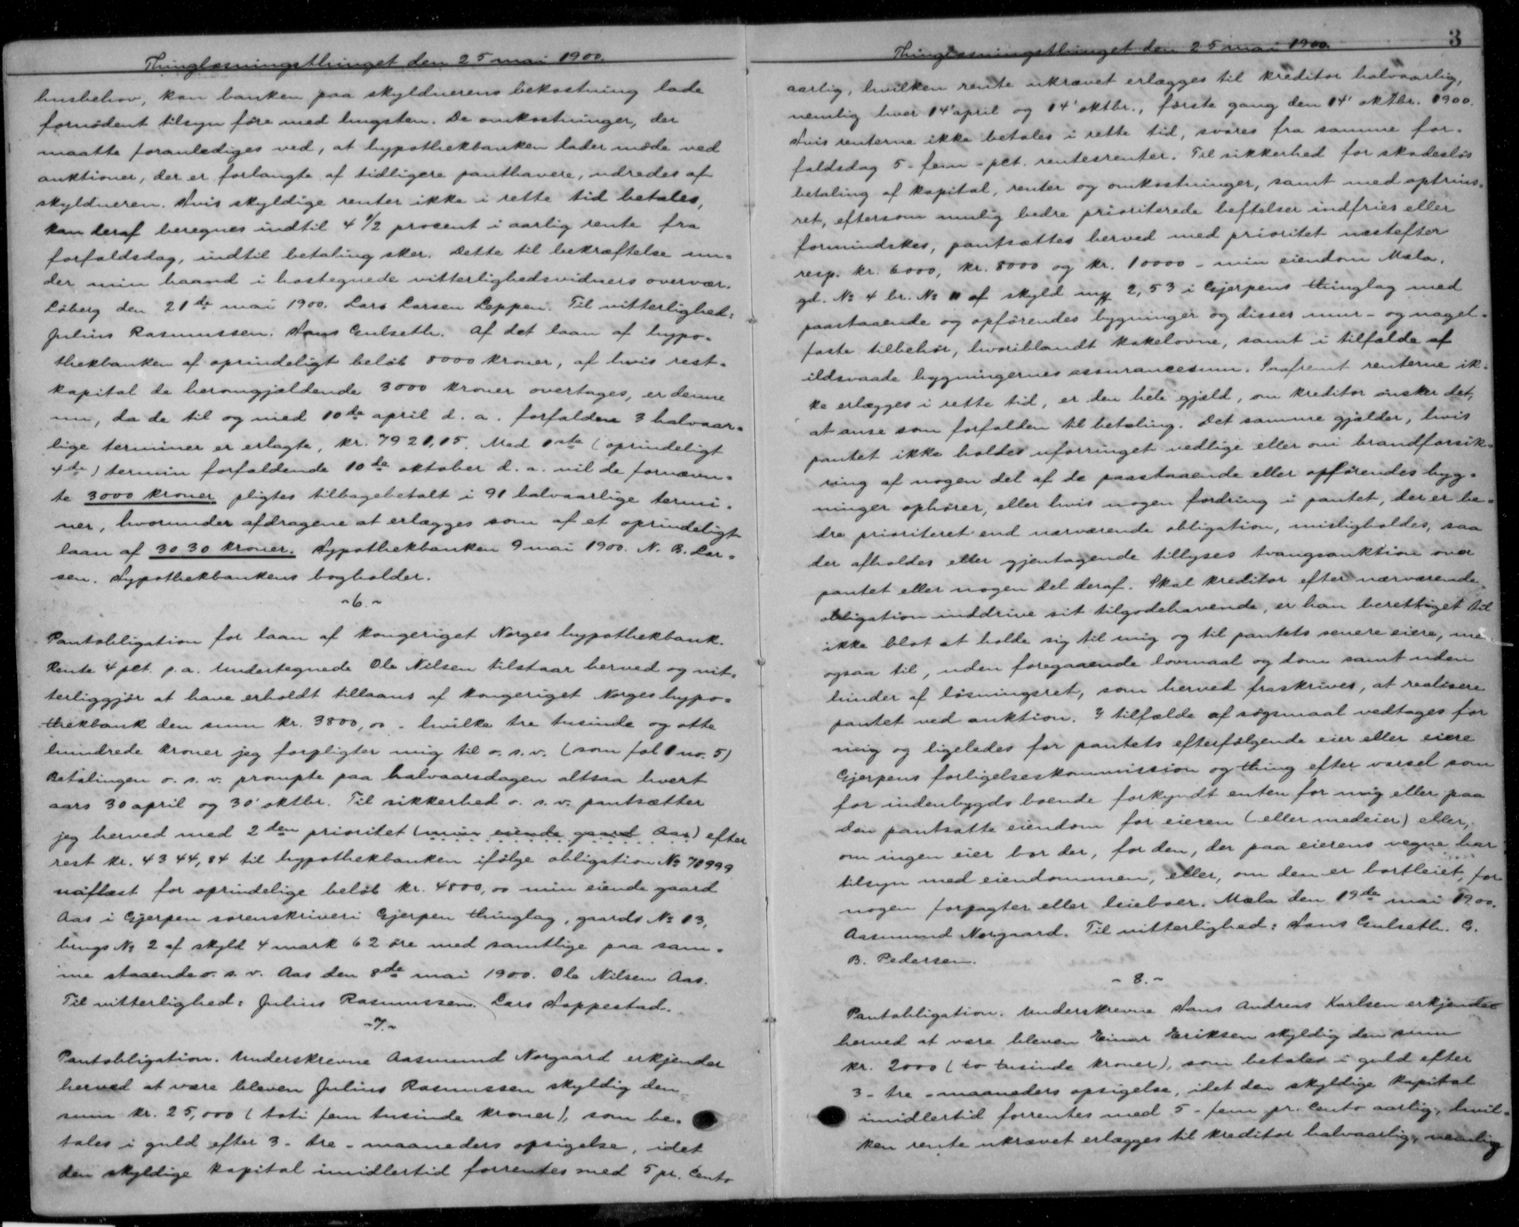 Thinglæsningsthinget den 25 mai 1900.
husbehov, kan banken paa skyldnerens bekostning lade
fornødent tilsyn føre med hugsten. De omkostninger, der
maatte foranlediges ved, at hypothekbanken lader møde ved
auktioner, der er forlangte af tidligere panthavere, udredes af
skyldneren. Hvis skyldige renter ikke i rette tid betales,
kan deraf beregnes indtil 4 1/2 procent i aarlig rente fra
forfaldsdag, indtil betaling sker. Dette til bekræftelse un-
der min haand i hostegnede vitterlighedsvidners overvær.
Löberg den 21de mai 1900. Lars Larsen Leppen. Til vitterlighed:
Julius Rasmussen. Hans Gulseth. Af det laan af hypo-
thekbanken af oprindeligt beløb 8000 kroner, af hvis rest-
kapital de heromgjældende 3000 kroner overtages, er denne
nu, da de til og med 10de april d. a. forfaldne 3 halvaar-
lige terminer er erlagte, kr. 7921,05. Med 1ste (oprindeligt
4de) termin forfaldende 10de oktober d. a. vil de fornævn-
te 3000 kroner pligtes tilbagebetalt i 91 halvaarlige termi-
ner, hvorunder afdragene at erlægges som af et oprindeligt
laan af 3030 kroner. Hypothekbanken 9 mai 1900. N. B. Lar-
sen. Hypothekbankens bogholder.
-6.-
Pantobligation for laan af kongeriget Norges hypothekbank.
Rente 4 pct. p. a. Undertegnede Ole Nilsen tilstaar herved og vit-
terliggjør at have erholdt tillaans af kongeriget Norges hypo-
thekbank den sum kr. 3800,00 - hvilke tre tusinde og otte
hundrede kroner jeg forpligter mig til o. s. v. (som fol 1 no. 5)
Betalingen o. s. v. prompte paa halvaarsdagen altsaa hvert
aars 30 april og 30' oktbr. Til sikkerhed o. s. v. pantsætter
jeg herved med 2den prioritet (min eiende gaard Aas) efter
rest kr. 4344,84 til hypothekbanken ifølge obligation No 70999
uaflæst for oprindelige beløb kr. 4800,00 min eiende gaard
Aas i Gjerpen sorenskriveri Gjerpen thinglag, gaards No 13,
brugs No 2 af skyld 4 mark 62 øre med samtlige paa sam-
me staaende o. s. v. Aas den 8de mai 1900. Ole Nilsen Aas.
Til vitterlighed: Julius Rasmussen. Lars Hoppestad.
-7.-
Pantobligation. Underskrevne Aasmund Norgaard erkjender
herved at være bleven Julius Rasmussen skyldig den
sum kr. 25,000 (toti fem tusinde kroner), som be-
tales i guld efter 3 - tre - maaneders opsigelse, idet
den skyldige kapital imidlertid forrentes med 5 pr. cento
Thinglæsningsthinget den 25 mai 1900.
3
aarlig, hvilken rente ukrævet erlægges til kreditor halvaarlig,
nemlig hver 14' april og 14' oktbr., første gang den 14' oktbr. 1900.
Hvis renterne ikke betales i rette tid, svares fra samme for-
faldsdag 5 - fem - pct. rentesrenter. Til sikkerhed for skadesløs
betaling af kapital, renter og omkostninger, samt med optrins-
ret, eftersom mulig bedre prioriterede heftelser indfries eller
formindskes, pantsættes herved med prioritet næstefter
resp. kr. 6000, kr. 8000 og kr. 10000 - min eiendom Mæla,
gd. No 4 br. No 11 af skyld 2,53 i Gjerpens thinglag med
paastaaende og opførendes bygninger og disses mur- og nagel-
faste tilbehør, hvoriblandt kakelovne, samt i tilfælde af
ildsvaade bygningernes assurancesum. Saafremt renterne ik-
ke erlægges i rette tid, er den hele gjæld, om kreditor ønsker det,
at anse som forfalden til betaling. Det samme gjælder, hvis
pantet ikke holdes uforringet vedlige eller om brandforsik-
ring af nogen del af de paastaaende eller opførendes byg-
ninger ophører, eller hvis nogen fordring i pantet, der er be-
dre prioriteret end nærværende obligation, misligholdes, saa
der afholdes eller gjentagende tillyses tvangsauktion over
pantet eller nogen del deraf. Skal kreditor efter nærværende
obligation inddrive sit tilgodehavende, er han berettiget til
ikke blot at holde sig til mig og til pantets senere eiere, me
ogsaa til, uden foregaaende lovmaal og dom samt uden
hinder af løsningsret, som herved fraskrives, at realisere
pantet ved auktion. I tilfælde af søgsmaal vedtages for
mig og ligeledes for pantets efterfølgende eier eller eiere
Gjerpens forligelseskommission og thing efter varsel som
for indenbygds boende forkyndt enten for mig eller paa
den pantsatte eiendom for eieren (eller medeier) eller,
om ingen eier bor der, for den, der paa eierens vegne har
tilsyn med eiendommen, eller, om den er bortleiet, for
nogen forpagter eller leieboer. Mæla den 19de mai 1900.
Aasmund Norgaard. Til vitterlighed: Hans Gulseth. G.
B. Pedersen.
-8.-
Pantobligation. Underskrevne Hans Andreas Karlsen erkjender
herved at være bleven Einar Eriksen skyldig den sum
kr. 2000 (to tusinde kroner), som betales i guld efter
3 - tre - maaneders opsigelse, idet den skyldige kapital
imidlertid forrentes med 5 - fem pr. cento aarlig, hvil-
ken rente ukrævet erlægges til kreditor halvaarlig, nemlig